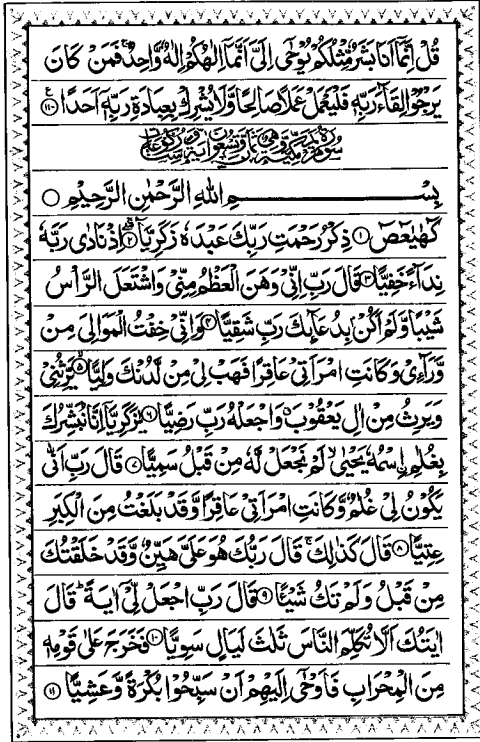 قُلْ اِنَّمَاۤ اَنَا بَشَرٌ مِّثْلُكُمْ یُوْحٰۤى اِلَیَّ اَنَّمَاۤ اِلٰهُكُمْ اِلٰهٌ وَّاحِدٌۚ فَمَنْ كَانَ
یَرْجُوْا لِقَآءَ رَبِّهٖ فَلْیَعْمَلْ عَمَلًا صَالِحًا وَّلَا یُشْرِكْ بِعِبَادَةِ رَبِّهٖۤ اَحَدًا ۝۱۱۰
بِسْمِ اللّٰهِ الرَّحْمٰنِ الرَّحِیْمِ ۝
كٓهٰیٰعٓصٓ ۝۱ ذِكْرُ رَحْمَتِ رَبِّكَ عَبْدَهٗ زَكَرِیَّا ۝۲ اِذْ نَادٰى رَبَّهٗ
نِدَآءً خَفِیًّا ۝۳ قَالَ رَبِّ اِنِّیْ وَهَنَ الْعَظْمُ مِنِّیْ وَاشْتَعَلَ الرَّاْسُ
شَیْبًا وَّلَمْ اَكُنْۢ بِدُعَآىِٕكَ رَبِّ شَقِیًّا ۝۴ وَاِنِّیْ خِفْتُ الْمَوَالِیَ مِنْ
وَّرَآءِیْ وَكَانَتِ امْرَاَتِیْ عَاقِرًا فَهَبْ لِیْ مِنْ لَّدُنْكَ وَلِیًّا ۝۵ یَّرِثُنِیْ
وَیَرِثُ مِنْ اٰلِ یَعْقُوْبَ وَاجْعَلْهُ رَبِّ رَضِیًّا ۝۶ یٰزَكَرِیَّاۤ اِنَّا نُبَشِّرُكَ
بِغُلٰمِ ِ۟اسْمُهٗ یَحْیٰىۙ لَمْ نَجْعَلْ لَّهٗ مِنْ قَبْلُ سَمِیًّا ۝۷ قَالَ رَبِّ اَنّٰى
یَكُوْنُ لِیْ غُلٰمٌ وَّكَانَتِ امْرَاَتِیْ عَاقِرًا وَّقَدْ بَلَغْتُ مِنَ الْكِبَرِ
عِتِیًّا ۝۸ قَالَ كَذٰلِكَۚ قَالَ رَبُّكَ هُوَ عَلَیَّ هَیِّنٌ وَّقَدْ خَلَقْتُكَ
مِنْ قَبْلُ وَلَمْ تَكُ شَیْـًٔا ۝۹ قَالَ رَبِّ اجْعَلْ لِّیْۤ اٰیَةًؕ قَالَ
اٰیَتُكَ اَلَّا تُكَلِّمَ النَّاسَ ثَلٰثَ لَیَالٍ سَوِیًّا ۝۱۰ فَخَرَجَ عَلٰى قَوْمِهٖ
مِنَ الْمِحْرَابِ فَاَوْحٰۤى اِلَیْهِمْ اَنْ سَبِّحُوْا بُكْرَةً وَّعَشِیًّا ۝۱۱